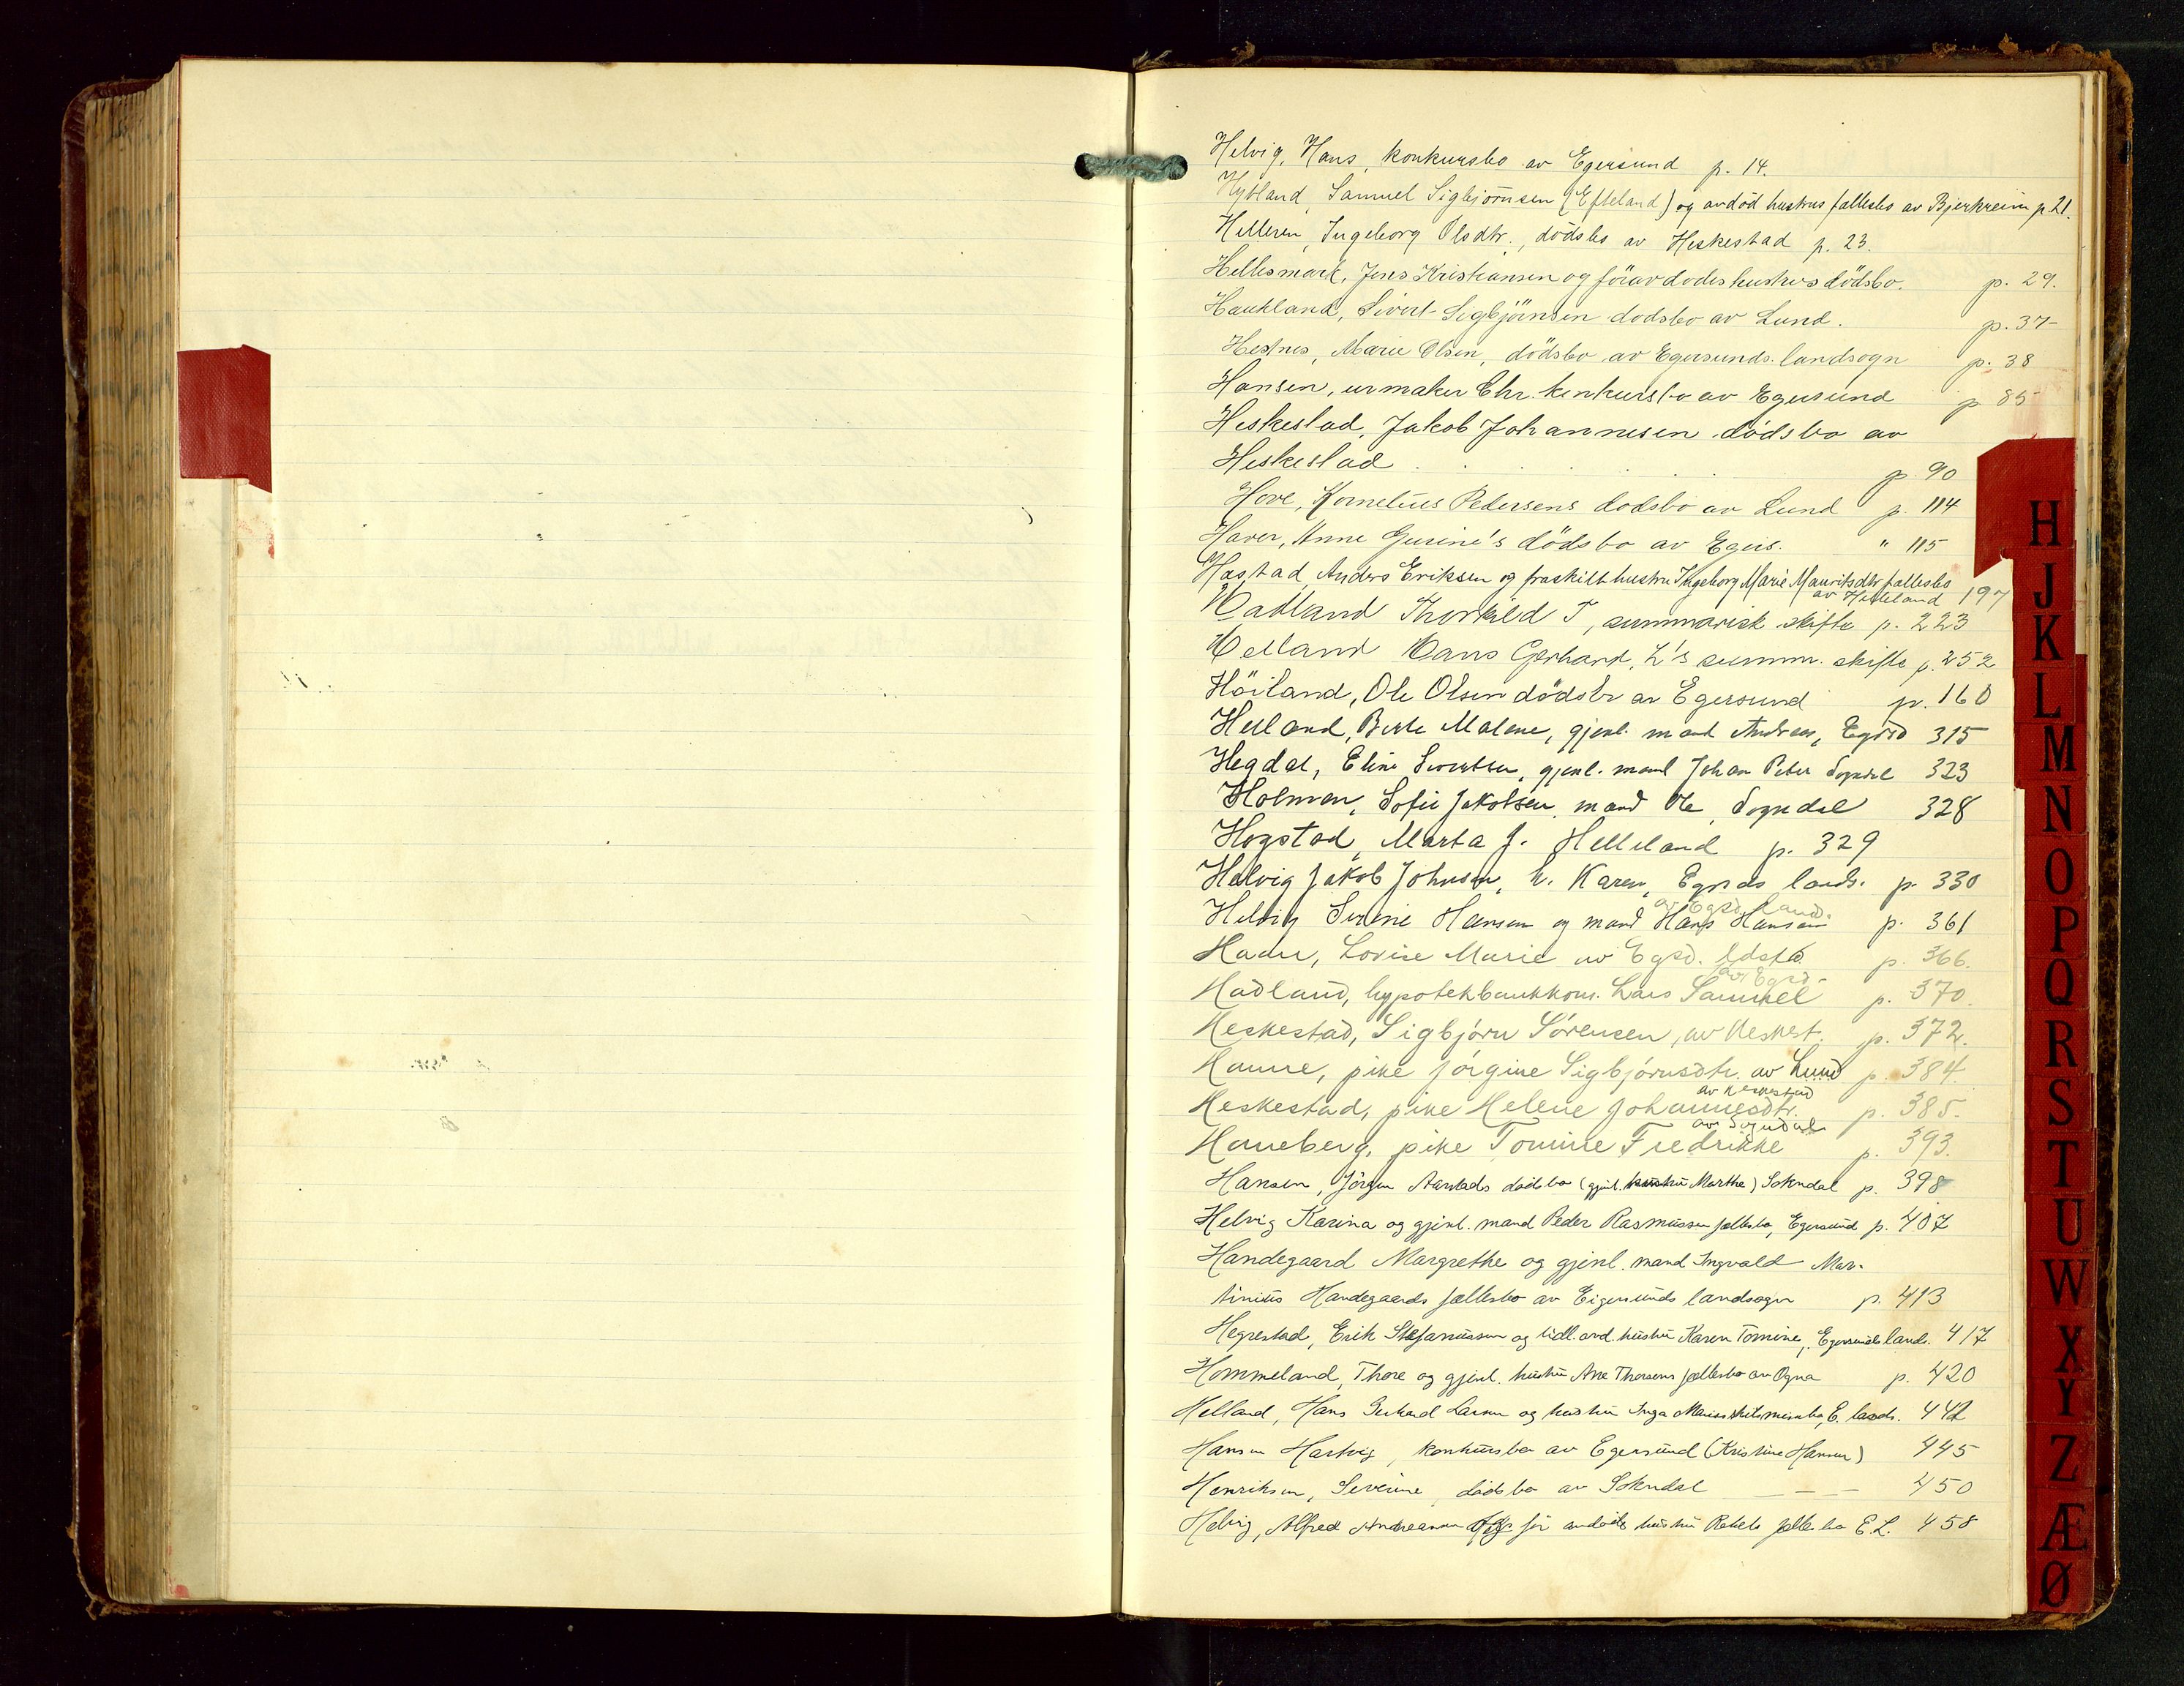 Helvig, Hans, konkursbo av Egersund p. 14.
Hytland, Samuel Sigbjørnsen (Efteland) og avdød hustrus fællesbo av Bjerkreim p 21.
Helleren, Ingeborg Olsdtr., dødsbo av Heskestad p. 23.
Hellesmark, Jens Kristiansen og førav dødes hustrus dødsbo. p. 29.
Haukland, Sivert Sigbjørnsen dødsbo av Lund. p. 37
Hestnes, Marie Olsen, dødsbo av Egersunds landsogn p. 38
Hansen, urmaker Chr. konkursbo av Egersund p. 85
Heskestad, Jakob Johannesen dødsbo av
Heskestad p. 90
Hove, Kornelius Pedersens dødsbo av Lund p. 114
Haver, Anne Gurine's dødsbo av Egers. " 115
Hastad, Anders Eriksen og fraskilt hustru Ingeborg Marie Mauritsdtr fællesbo
av Helleland 197
Hadland Thorkild T, summarisk skifte p. 223
Helland Hans Gerhard, L's summ. skifte p. 252
Höiland, Ole Olsen dødsbo av Egersund p. 160
Helland, Berte Malene, gjenl. mand Andreas, Egsd 315
Hegdal, Eline Sivertsen, gjenl. mand Johan Peter Sogndal 323
Holmen, Sofie Jakobsen, mand Ole, Sogndal 328
Hogstad, Marta J. Helleland p. 329
Helvig Jakob Johnsen, h. Karen, Egsds lands. p. 330
av Egsd. land.
Helvig Serine Hansen og mand Hans Hansen p. 361
Hader, Lovise Marie av Egsd. ldsto p. 366.
av Egsd.
Hadland, hypotekbankkom. Lars Samuel p. 370.
Heskestad, Sigbjørn Sørensen, av Heskest. p. 372.
Hamre, pike Jørgine Sigbjørnsdtr. av Lund p. 384.
av Heskestad
Heskestad, pike Helene Johannesdtr. p. 385.
av Sogndal
Haneberg, pike Tomine Fredrikke p. 393.
Hansen, Jörgen Aarstads dødsbo (gjenl. hustru Marthe) Sokndal p. 398
Helvig Karina og gjenl. mand Peder Rasmussen fællesbo, Egersund p. 407
Handegaard Margrethe og gjenl. mand Ingvald Mar-
tinius Handegaards fællesbo av Eigersunds landsogn p. 413
Hegrestad, Erik Stefanussen og tidl. avd. hustru Karen Tomine, Egersunds lands. 417
Hommeland, Thore og gjenl. hustru Ane Thorsens fællesbo av Ogna p. 420
Helland, Hans Gerhard Larsen og hustru Inga Maries skilsmissebo, E. lands. 442
Hansen Hartvig, konkursbo av Egersund (Kristine Hansen) 445
Henriksen, Severine, dødsbo av Sokndal — — — 450
Helvig, Alfred Andreassen og før avdøde hustru Rakels fællesbo E.L. 458
H
J
K
L
M
N
O
P
Q
R
S
T
U
W
X
Y
Z
Æ
Ø